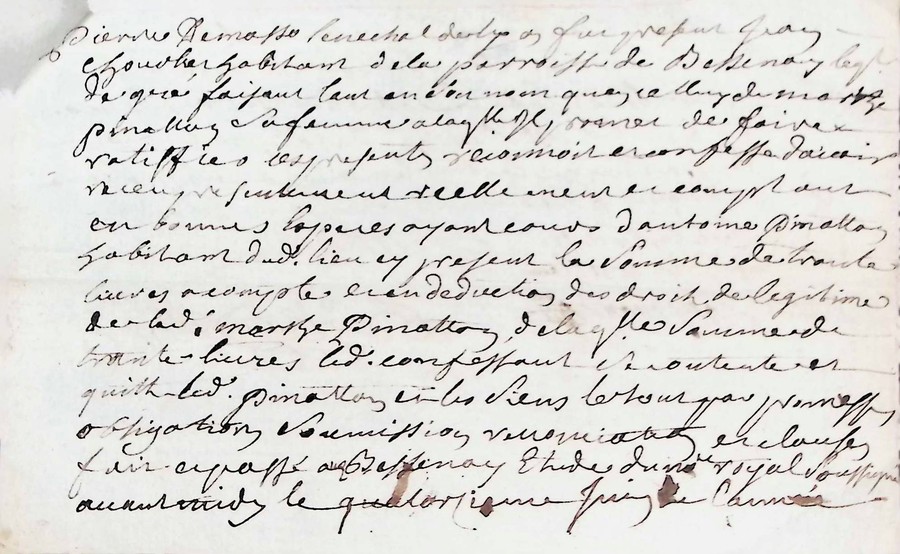 Pierre Demasso senechal de Lyon fut present Jean
habitant de la parroisse de Bessenay leql
de gré faisant tant en son nom que celluy de marthe
pinatton sa femme a laqlle Il promet de faire
ratiffier ces presentes reconnoit et confesse d'avoir
receu presentement reellement et comptant
en bonnes Especes ayant cours d'antoine Pinatton
habitant dud. lieu cy present la somme de trante
livres a compte et en deduction des droits de legitime
de lad. marthe Pinatton de laqlle somme de
trante livres led. confessant se contente et
quitte led. pinatton et les siens le tout par promesses
obligation soumission renonciation et clauses
fait et passé a Bessenay Etude du nre royal soussigné
avant midy le quatorzieme Juin de l'année